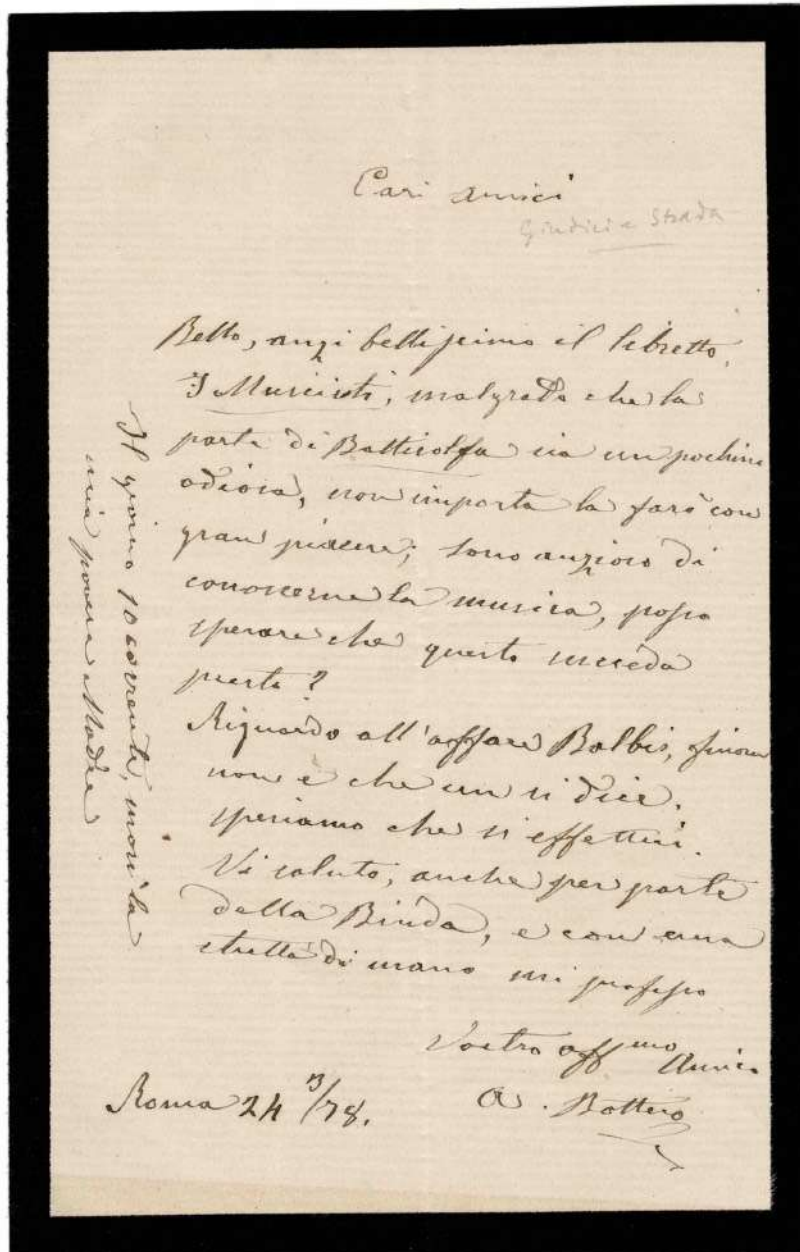 Cari amici
Giudici e Strada
Bello, anzi bellissimo il libretto,
I Musicisti, malgrado che la
parte di Batticolfa sia un pochino
odiosa, non importa la farò con
gran piacere; sono anzioso di
conoscerne la musica, posso
sperare che questo succeda
presto?
Riguardo all'affare Balbis, finora
non è che un si dice.
speriamo che si effettui.
Vi saluto, anche per parte
della Binda, e con una
stretta di mano mi professo
Vostro aff.mo Amico
A. Bottero
Roma 24 /78.
Il giorno 10 corrente, morì la
mia povera Madre